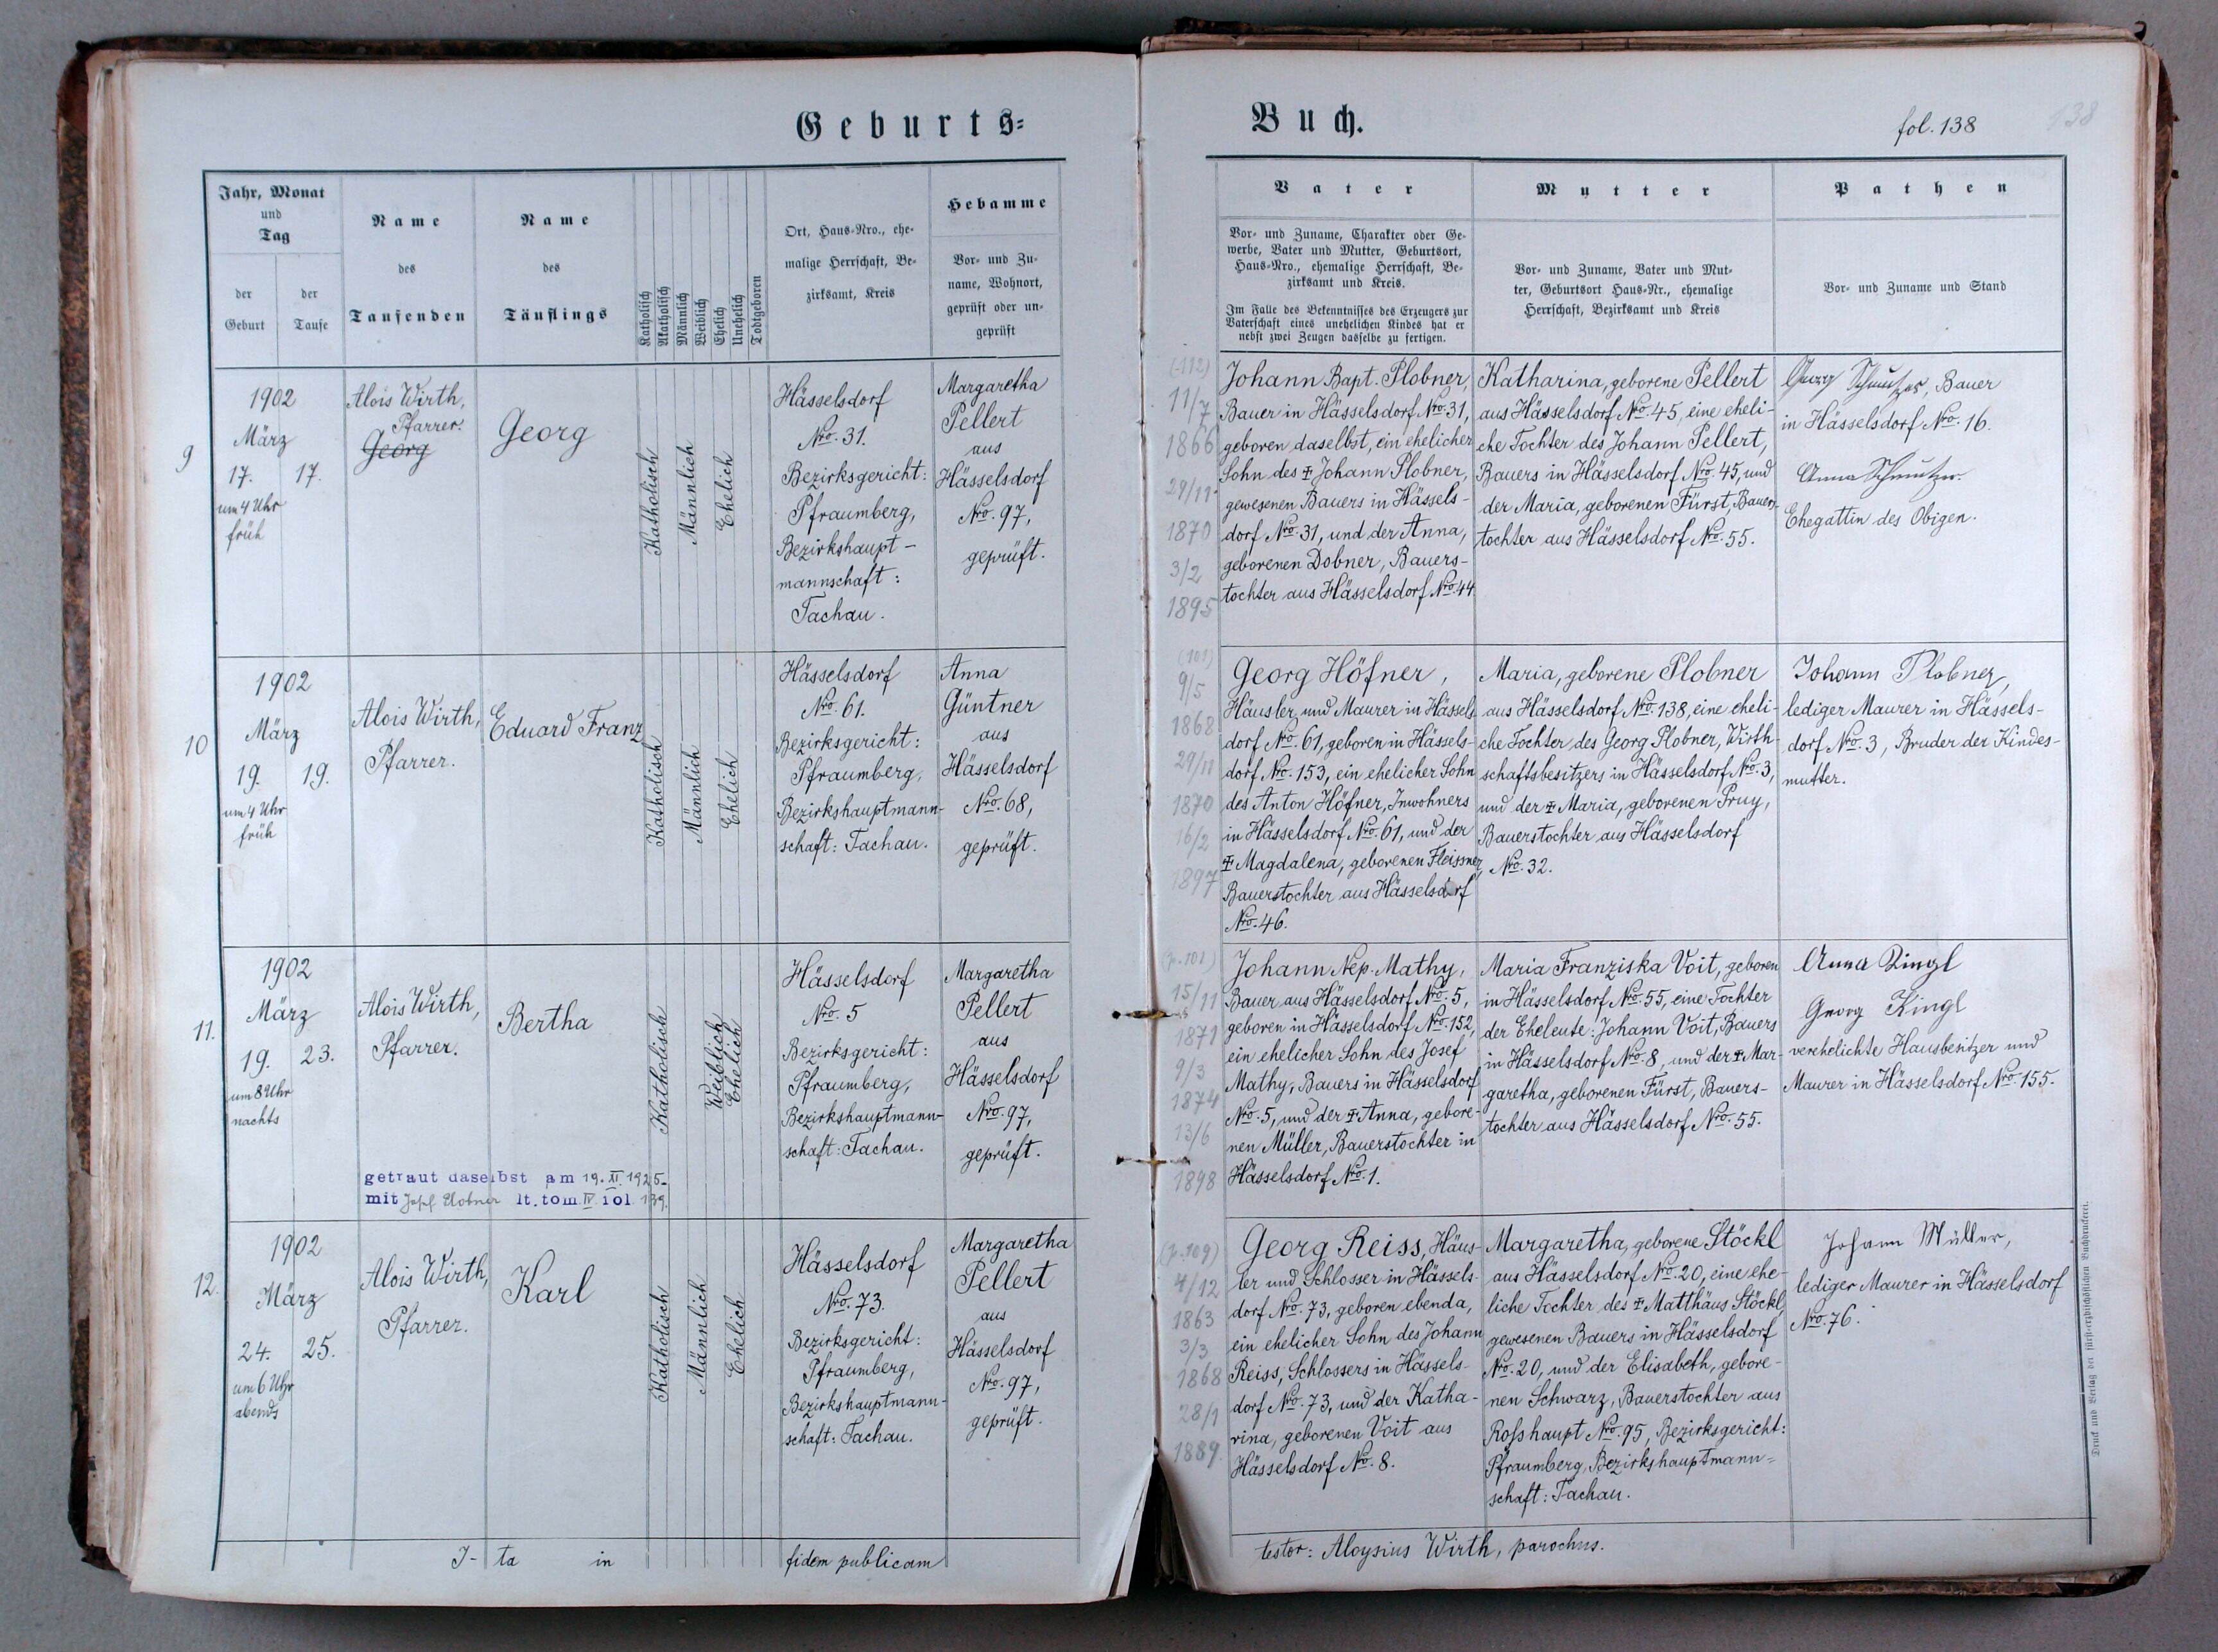 Geburts-
Buch.
fol. 138
138
Jahr, Monat
und
Tag
der
Geburt
der
Taufe
Name
des
Taufenden
Name
des
Täuflings
Katholisch
Akatholisch
Männlich
Weiblich
Ehelich
Unehelich
Todtgeboren
Ort, Haus-Nro., ehe-
malige Herrschaft, Be-
zirksamt, Kreis
Hebamme
Vor- und Zu-
name, Wohnort,
geprüft oder un-
geprüft
Vater
Vor- und Zuname, Charakter oder Ge-
werbe, Vater und Mutter, Geburtsort,
Haus-Nro., ehemalige Herrschaft, Be-
zirksamt und Kreis.
Im Falle des Bekenntnisses des Erzeugers zur
Vaterschaft eines unehelichen Kindes hat er
nebst zwei Zeugen dasselbe zu fertigen.
Mutter
Vor- und Zuname, Vater und Mut-
ter, Geburtsort Haus-Nr., ehemalige
Herrschaft, Bezirksamt und Kreis
Pathen
Vor- und Zuname und Stand
9
1902
März
17. 17.
um 4 Uhr
früh
Alois Wirth,
Pfarrer.
Georg
Georg
Katholisch
Männlich
Ehelich
Hässelsdorf
Nro. 31.
Bezirksgericht:
Pfraumberg,
Bezirkshaupt-
mannschaft:
Tachau.
Margaretha
Pellert
aus
Hässelsdorf
Nro. 97,
geprüft.
(112)
11/7
1866
29/11
1870
3/2
1895
Johann Bapt. Plobner,
Bauer in Hässelsdorf Nro. 31,
geboren daselbst, ein ehelicher
Sohn des ‡ Johann Plobner,
gewesenen Bauers in Hässels-
dorf Nro. 31, und der Anna,
geborenen Dobner, Bauers-
tochter aus Hässelsdorf Nro. 44.
Katharina, geborene Pellert
aus Hässelsdorf Nro. 45, eine eheli-
che Tochter des Johann Pellert,
Bauers in Hässelsdorf Nro. 45, und
der Maria, geborenen Fürst, Bauers-
tochter aus Hässelsdorf Nro. 55.
Georg Schmutzer, Bauer
in Hässelsdorf Nro. 16.
Anna Schmutzer.
Ehegattin des Obigen.
10
1902
März
19. 19.
um 4 Uhr
früh
Alois Wirth,
Pfarrer.
Eduard Franz
Katholisch
Männlich
Ehelich
Hässelsdorf
Nro. 61.
Bezirksgericht:
Pfraumberg,
Bezirkshauptmann-
schaft: Tachau.
Anna
Güntner
aus
Hässelsdorf
Nro. 68,
geprüft.
9/5
1868
29/11
1870
16/2
1897
Georg Höfner,
Häusler und Maurer in Hässels-
dorf Nro. 61, geboren in Hässels-
dorf Nro. 153, ein ehelicher Sohn
des Anton Höfner, Inwohners
in Hässelsdorf Nro. 61, und der
‡ Magdalena, geborenen Fleissner,
Bauerstochter aus Hässelsdorf
Nro. 46.
Maria, geborene Plobner
aus Hässelsdorf Nro. 138, eine eheli-
che Tochter des Georg Plobner, Wirth-
schaftsbesitzers in Hässelsdorf Nro. 3,
und der ‡ Maria, geborenen Pruy,
Bauerstochter aus Hässelsdorf
Nro. 32.
Johann Plobner,
lediger Maurer in Hässels-
dorf Nro. 3, Bruder der Kindes-
mutter.
11.
1902
März
19. 23.
um 8 Uhr
nachts
Alois Wirth,
Pfarrer.
Bertha
Katholisch
Weiblich
Ehelich
Hässelsdorf
Nro. 5
Bezirksgericht:
Pfraumberg,
Bezirkshauptmann-
schaft: Tachau.
Margaretha
Pellert
aus
Hässelsdorf
Nro. 97,
geprüft.
getraut daselbst am 19. XI. 1925
mit lt. tom IV fol 139.
(p. 101)
15/11
1871
9/3
1874
13/6
1898
Johann Nep. Mathy,
Bauer aus Hässelsdorf Nro. 5,
geboren in Hässelsdorf Nro. 152,
ein ehelicher Sohn des Josef
Mathy, Bauers in Hässelsdorf
Nro. 5, und der ‡ Anna, gebore-
nen Müller, Bauerstochter in
Hässelsdorf Nro. 1.
Maria Franziska Voit, geboren
in Hässelsdorf Nro. 55, eine Tochter
der Eheleute: Johann Voit, Bauers
in Hässelsdorf Nro. 8, und der ‡ Mar-
garetha, geborenen Fürst, Bauers-
tochter aus Hässelsdorf Nro. 55.
Anna Kingl
Georg Kingl
verehelichte Hausbesitzer und
Maurer in Hässelsdorf Nro. 155.
12.
1902
März
24. 25.
um 6 Uhr
abends
Alois Wirth,
Pfarrer.
Karl
Katholisch
Männlich
Ehelich
Hässelsdorf
Nro. 73.
Bezirksgericht:
Pfraumberg,
Bezirkshauptmann-
schaft: Tachau.
Margaretha
Pellert
aus
Hässelsdorf
Nro. 97,
geprüft.
(p. 109)
4/12
1863
3/3
1868
28/1
1889.
Georg Reiss, Häus-
ler und Schlosser in Hässels-
dorf Nro. 73, geboren ebenda,
ein ehelicher Sohn des Johann
Reiss, Schlossers in Hässels-
dorf Nro. 73, und der Katha-
rina, geborenen Voit aus
Hässelsdorf Nro. 8.
Margaretha, geborene Stöckl
aus Hässelsdorf Nro. 20, eine ehe-
liche Tochter des ‡ Matthäus Stöckl,
gewesenen Bauers in Hässelsdorf
Nro. 20, und der Elisabeth, gebore-
nen Schwarz, Bauerstochter aus
Rosshaupt Nro. 95, Bezirksgericht:
Pfraumberg, Bezirkshauptmann-
schaft: Tachau.
Johann Müller,
lediger Maurer in Hässelsdorf
Nro. 76.
I-ta in fidem publicam
testor: Aloysius Wirth, parochus.
Druck und Verlag der fürst-erzbischöflichen Buchdruckerei.